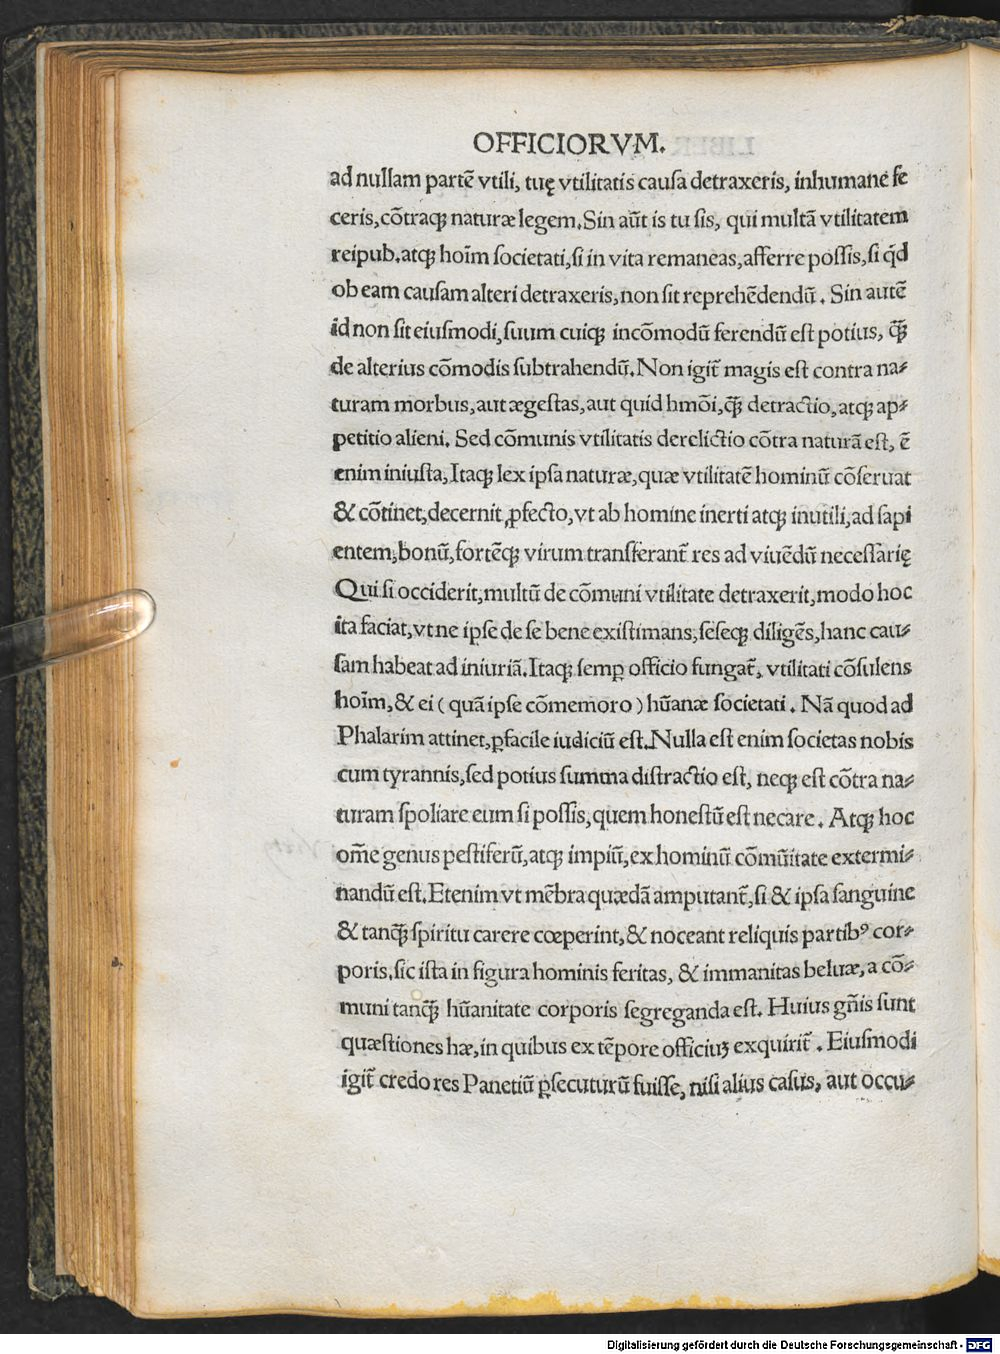 OFFICIORVM.
ad nullam partē vtili, tuę vtilitatis cauſa detraxeris, inhumane fe
ceris, cōtraqꝫ naturæ legem. Sin aūt is tu ſis, qui multā vtilitatem
reipub. atqꝫ hoīm ſocietati, ſi in vita remaneas, afferre poſſis, ſi qͥd
ob eam cauſam alteri detraxeris, non ſit reprehēdendū. Sin autē
id non ſit eiuſmodi, ſuum cuiqꝫ incōmodū ferendū eſt potius, qꝫ̄
de alterius cōmodis ſubtrahendū. Non igit̄ magis eſt contra na⸗
turam morbus, aut ægeſtas, aut quid hmōi, qꝫ̄ detractio, atqꝫ ap⸗
petitio alieni. Sed cōmunis vtilitatis derelictio cōtra naturā eſt, ē
enim iniuſta, Itaqꝫ lex ipſa naturæ, quæ vtilitatē hominū cōſeruat
& cōtinet, decernit ꝓfecto, vt ab homine inerti atqꝫ inutili, ad ſapi
entem, bonū, fortēqꝫ virum transferant̄ res ad viuēdū neceſſarię
Qui ſi occiderit, multū de cōmuni vtilitate detraxerit, modo hoc
ita faciat, vt ne ipſe de ſe bene exiſtimans, ſeſeqꝫ diligēs, hanc cau⸗
ſam habeat ad iniuriā. Itaqꝫ ſemꝑ officio fungat̄, vtilitati cōſulens
hoīm, & ei (quā ipſe cōmemoro) hūanæ ſocietati. Nā quod ad
Phalarim attinet, ꝑfacile iudiciū eſt. Nulla eſt enim ſocietas nobis
cum tyrannis, ſed potius ſumma diſtractio eſt, neqꝫ eſt cōtra na⸗
turam ſpoliare eum ſi poſſis, quem honeſtū eſt necare. Atqꝫ hoc
om̄e genus peſtiferū, atqꝫ impiū, ex hominū cōmūitate extermi⸗
nandū eſt. Etenim vt mēbra quædā amputant̄, ſi & ipſa ſanguine
& tanqꝫ̄ ſpiritu carere cœperint, & noceant reliquis partibꝰ cor⸗
poris, ſic iſta in figura hominis feritas, & immanitas beluæ, a cō⸗
muni tanqꝫ̄ hūanitate corporis ſegreganda eſt. Huius gn̄is ſunt
quæſtiones hæ, in quibus ex tēpore officiuꝫ exquirit̄. Eiuſmodi
igit̄ credo res Panetiū ꝑſecuturū fuiſſe, niſi alius caſus, aut occu⸗
Digitalisierung gefördert durch die Deutsche Forschungsgemeinschaft - DFG